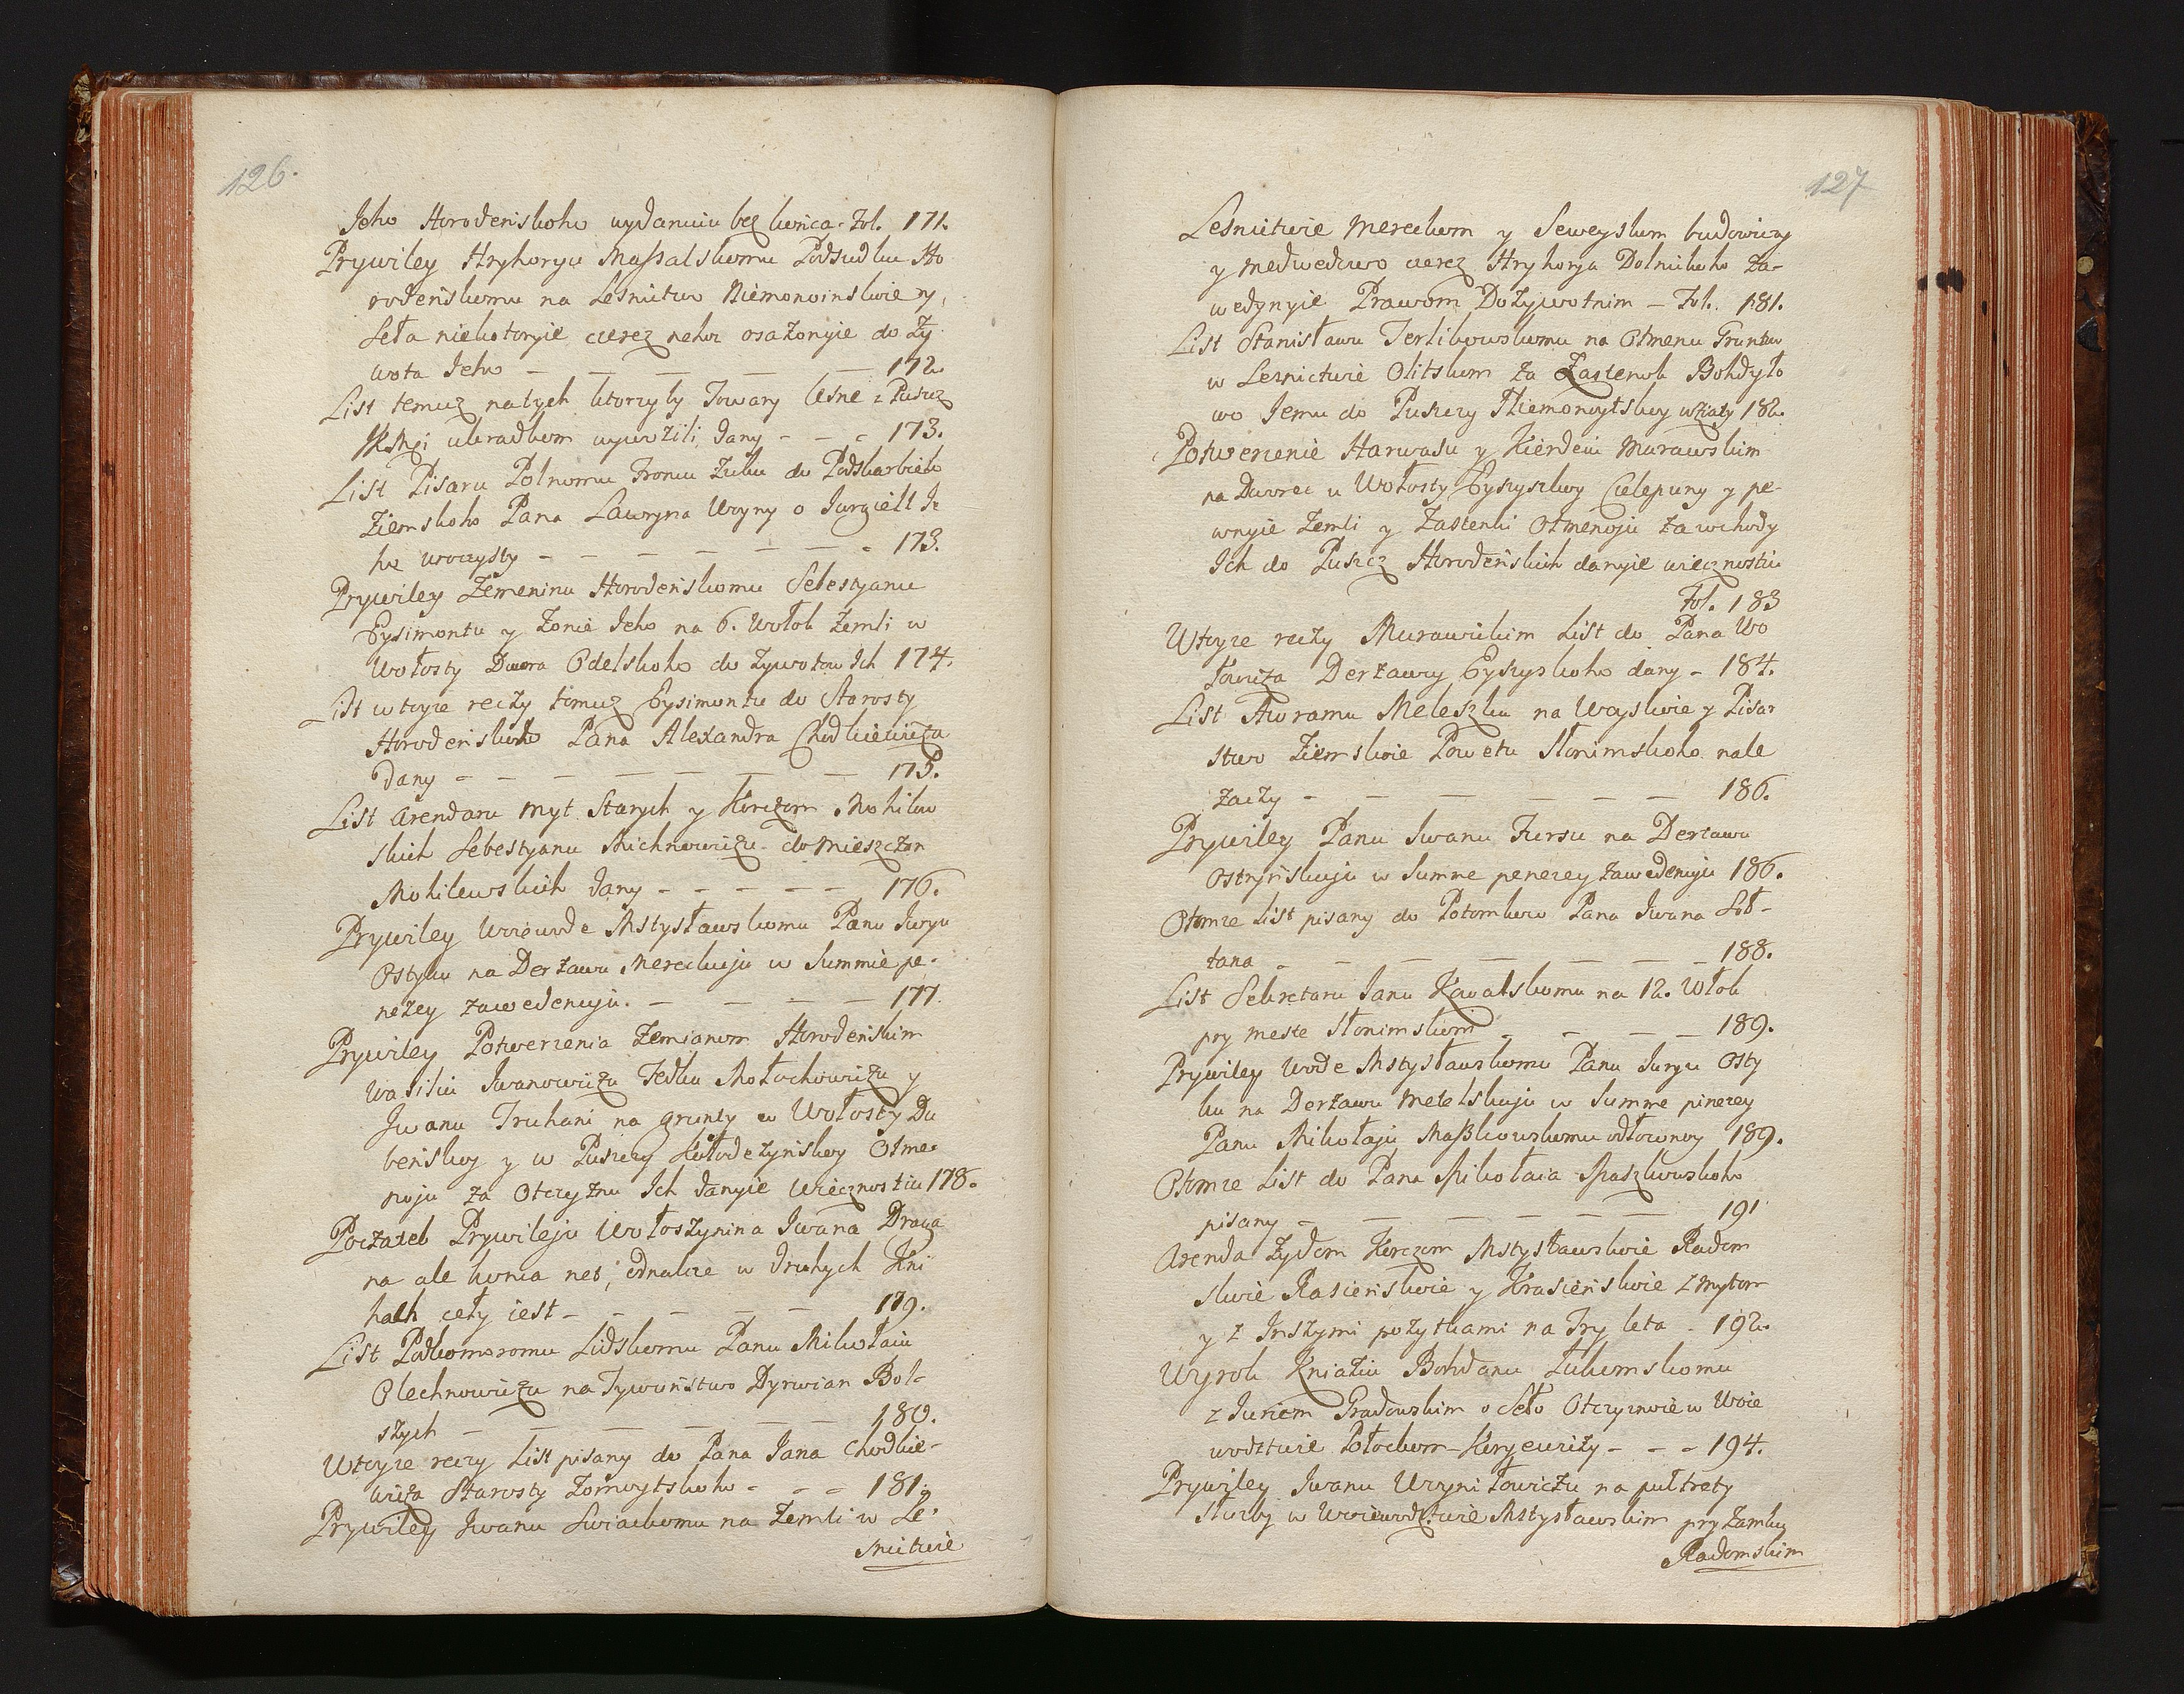 126.
Joho Horodenskoho wydaniu bez konca. Fol. 171.
Prywiley Hryhoryu Massalskomu Podsudku Ho
rodeńskomu na Lesnictwo Niemonoinskoie y
Seła niekotoryie czerez neho osażonyie do Ży
wota Jeho — — — — — 172
List temuż na tych ktoryby Towary leśne z Puszcz
JKMści ukradkom wywozili, dany - - - 173.
List Pisaru Polnomu Froncu Żuku do Podskarbieho
Ziemskoho Pana Ławryna Woyny o Jurgielt Je
ho uroczysty - - - - - - - 173.
Prywiley Zemeninu Horodenskomu Sebestyanu
Eysimontu y Żonie Jeho na 6. Wołok Zemli w
Wołosty Dwora Odelskoho do Żywotow Ich 174.
List w toyże reczy tomuż Eysimontu do Starosty
Horodenskoho Pana Alexandra Chodkiewicza
Dany - - - - - - - 175.
List Arendaru Myt Starych y Korczom Mohilew
skich Sebestyanu Michnowiczu do Mieszczan
Mohilewskich dany - - - - - 176.
Prywiley Woiewode Mstysławskomu Panu Juryu
Ostyku na Derżawu Mereckuju w Summie pe-
nezey zawedenuju. - - - - 177.
Prywiley Potwerzenia Zemianom Horodeńskim
Wasiliu Iwanowiczu Fedku Mołochowiczu y
Iwanu Truhani na grunty w Wołosty Du
beńskoy y w Puszczy Kołodeżynskoy Otme-
noju za Otczyznu Ich danyie Wiecznostiu 178.
Poczatek Prywileju Wołoszynina Iwana Draga
na ale konca net; odnakze w druhych Kni
hach ceły iest - - - - - 179.
List Podkomoromu Lidskomu Panu Mikołaiu
Olechnowiczu na Tywuństwo Dyrwian Bol-
szych - - - - - - 180.
W toyże reczy List pisany do Pana Jana Chodkie-
wicza Starosty Żomoytskoho - - - 181.
Prywiley Iwanu Swiackomu na Zemli w Le-
snictwie
127
Leśnictwie Mereckom y Seweyskom budowiczy
y Medwedzwo czerez Hryhorja Dolnickoho za-
wedznyie Prawom Dożywotnim - Fol. 181.
List Stanisławu Terlikowskomu na Otmenu Gruntu
w Lesnictwie Olitskom za Zastenok Bohdyło
wo Jemu do Puszczy Niemonoytskoy wziaty 182.
Potwerzenie Harwasu y Kierdeiu Murawskim
na Dworec u Wołosty Eyszyszkoy Cielepuny y pe-
wnyie Zemli y Zastenki Otmenoju za wchody
Ich do Puszcz Horodeńskich danyie wiecznostiu
Fol. 183
W toyże reczy Murawskim List do Pana Wo
łowicza Derżawcy Eyszyskoho dany - 184.
List Awramu Meleszku na Woyskoie y Pisar
stwo Ziemskoie Powetu Słonimskoho nale
żaczy - - - - - - 186.
Prywiley Panu Iwanu Fursu na Derżawu
Ostryńskuju w Summe penezey zawedenuju 186.
O tomże List pisany do Potomkow Pana Iwana Soł-
tana - - - - - - - 188.
List Sekretaru Janu Kowalskomu na 12. Włok
pry meste Słonimskom - - - - 189.
Prywiley Wode Mstysławskomu Panu Juryu Osty
ku na Derżawu Metelskuju w Summe pinezey
Panu Mikołaju Maszkowskomu odłożonoy 189.
O tomże List do Pana Mikołaia Maszkowskoho
pisany - - - - - - 191
Arenda Żydom Korczom Mstysławskoie Radom
skoie Rasieńskoie y Krasieńskoie z mytom
y z Inszymi pożytkami na Try leta - 192.
Wyrok Kniaziu Bohdanu Łukomskomu
z Juriem Gradowskim o Seło Otczyznoie w Woie
wodztwie Połockom - Koryewiczy - - - 194.
Prywiley Iwanu Woyniłowiczu na pułtrety
Służby w Woiewodztwie Mstysławskim pry Zamku
Radomskim